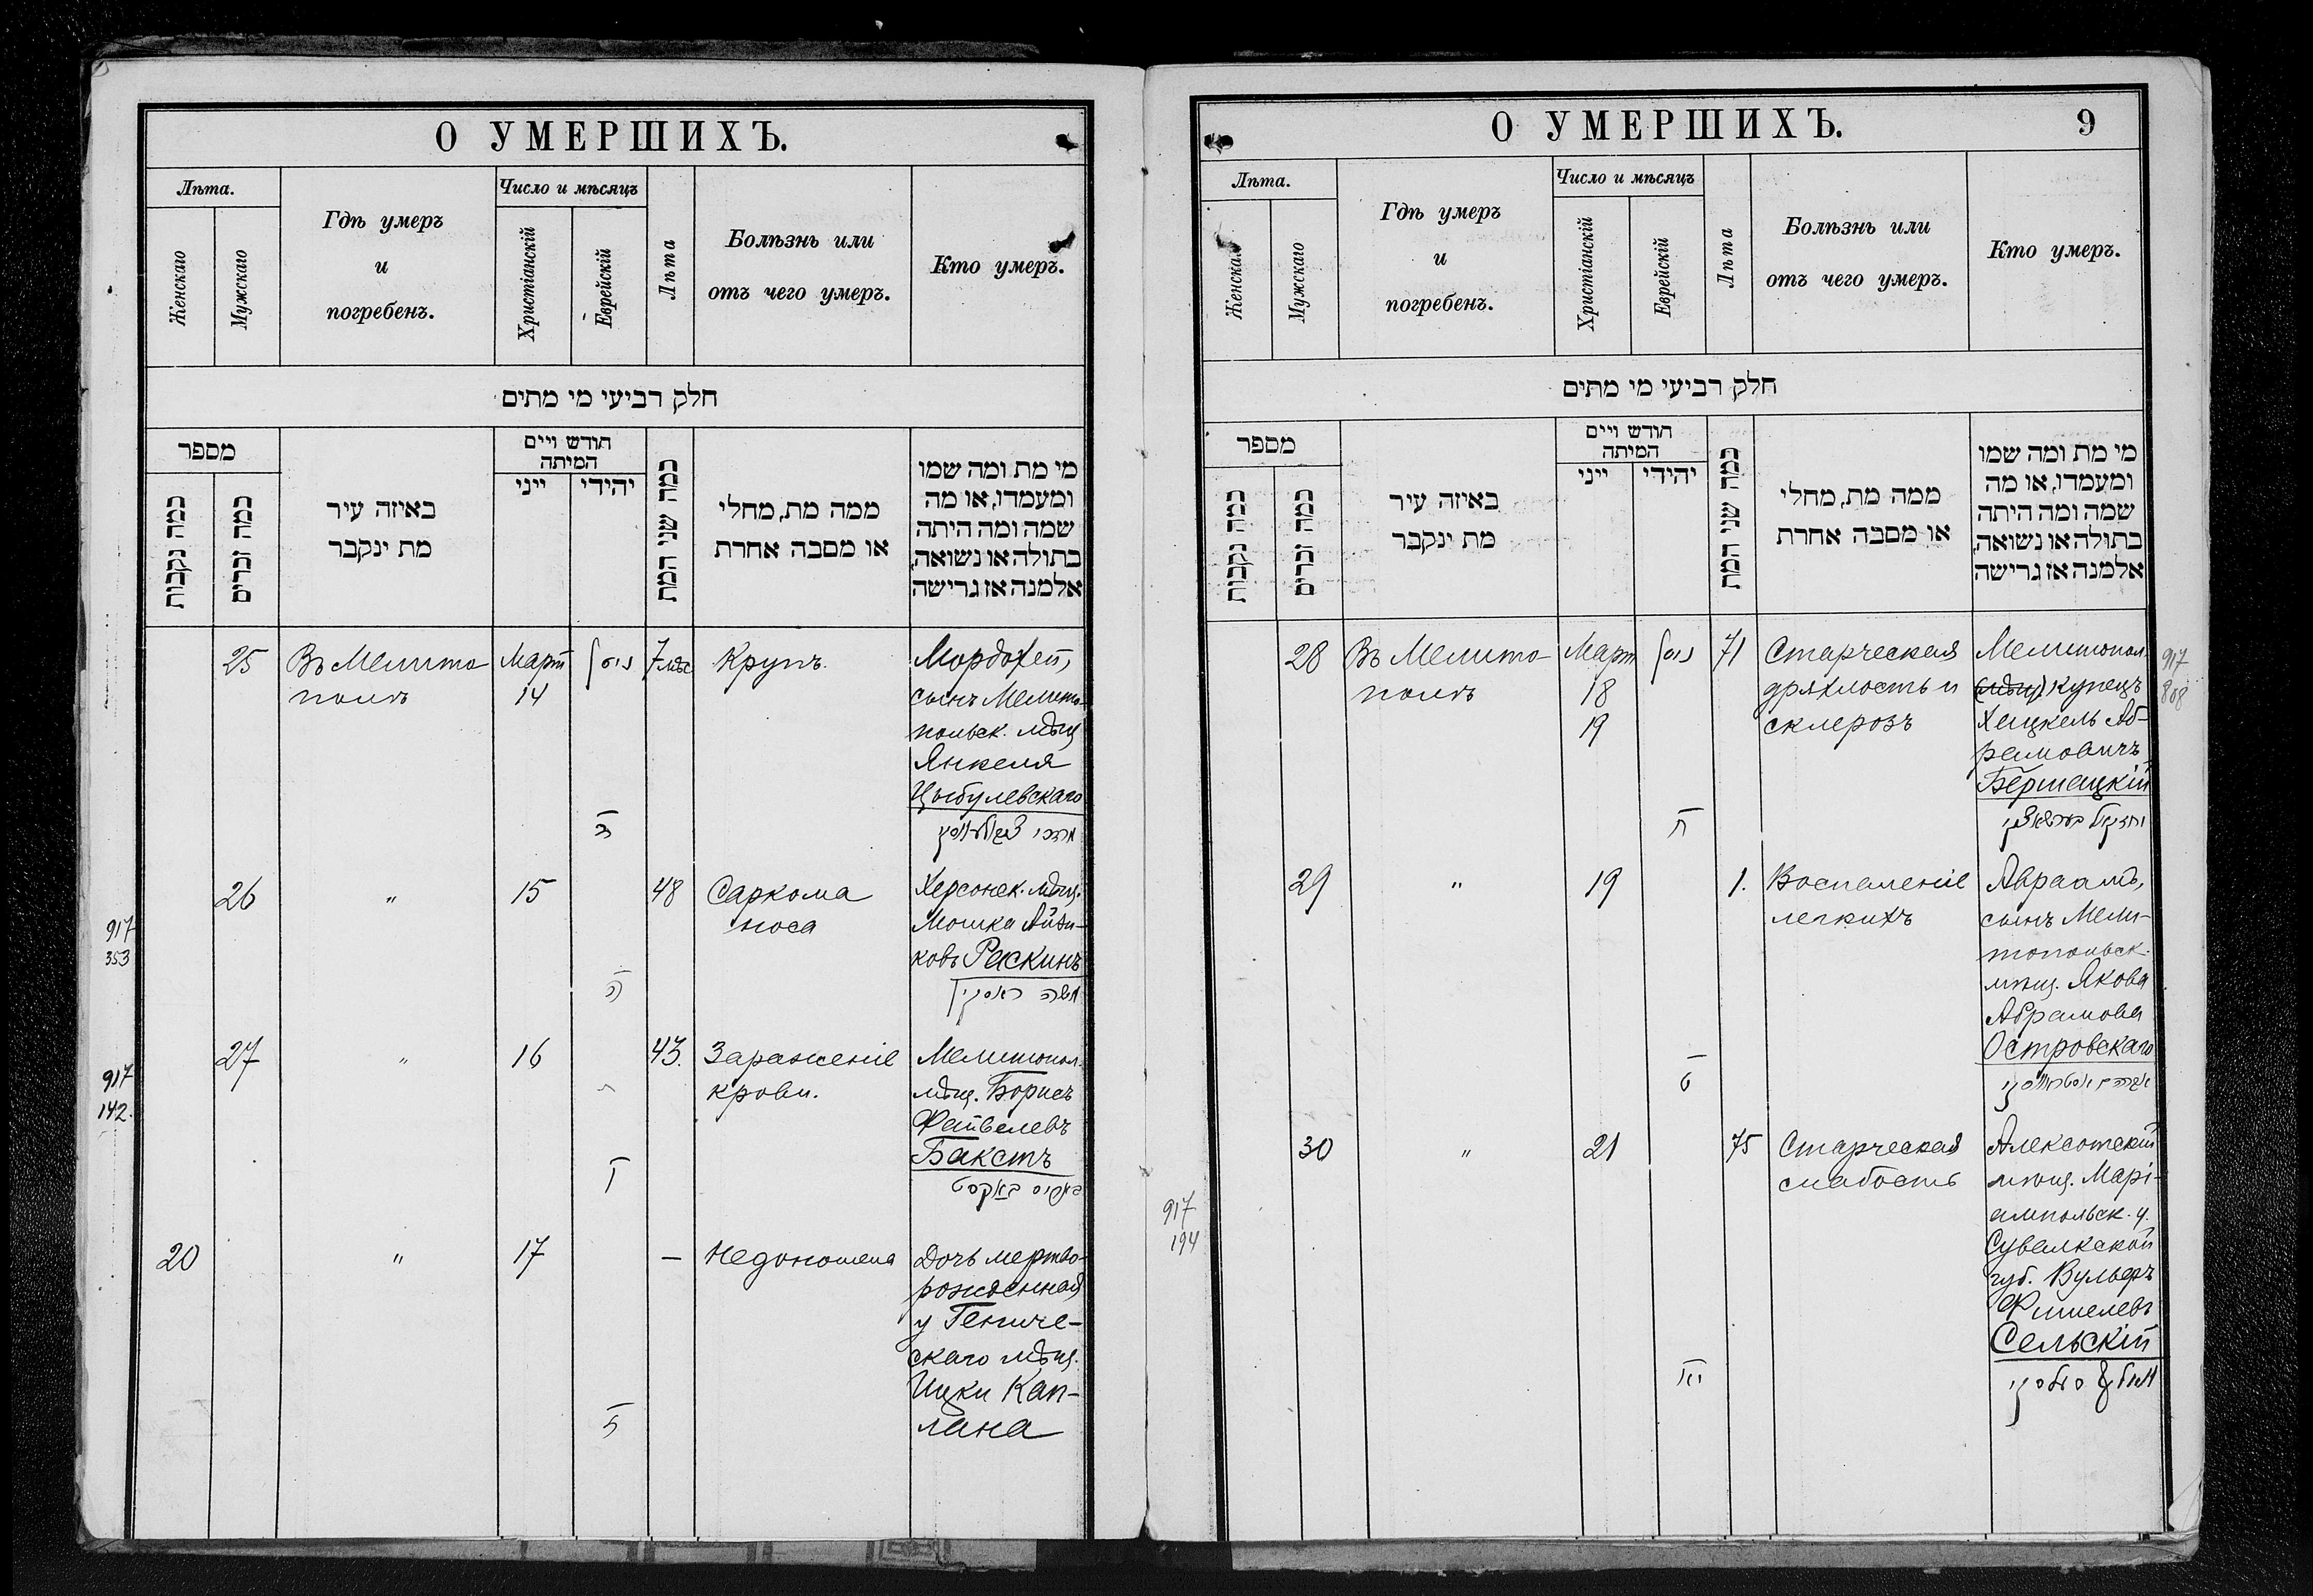 О УМЕРШИХЪ.
Лѣта.
Женскаго
Мужскаго
Гдѣ умеръ
и
погребенъ.
Число и мѣсяцъ
Христіанскій
Еврейскій
Лѣта
Болѣзнь или
отъ чего умеръ.
Кто умеръ.
חלק רביעי מי מתים
מספר
כמה נקבות
כמה זכרים
באיזה עיר
מת ינקבר
חודש ויים
המיתה
ייני
יהידי
כמה שני המת
ממה מת, מחלי
או מסבה אחרת
מי מת ומה שמו
ומעמדו, או מה
שמה ומה היתה
בתולה או נשואה,
אלמנה אז גרישה
25
Въ Мелито
полѣ
Март
14
ניסן
7 мѣс
Крупъ.
Мордохей,
сынъ Мелито-
польск. мѣщ
Янкеля
Цыбулевскаго
ה
מרדכי
917
353
26
"
15
48
Саркома
носа
Херсонск. мѣщ.
Мошка Айзи-
ковъ Раскинъ
ו
משה ראסקין
917
142.
27
"
16
43.
Зараженіе
крови.
Мелитопол.
мѣщ. Борисъ
Файвелевъ
Бакстъ
ז
באקסט
20
"
17
—
Недоношена
Дочь мертво-
рожденная
у Гениче-
скаго мѣщ.
Ицки Кап-
лана
О УМЕРШИХЪ.
9
Лѣта.
Женскаго
Мужскаго
Гдѣ умеръ
и
погребенъ.
Число и мѣсяцъ
Христіанскій
Еврейскій
Лѣта
Болѣзнь или
отъ чего умеръ.
Кто умеръ.
חלק רביעי מי מתים
מספר
כמה נקבות
כמה זכרים
באיזה עיר
מת ינקבר
חודש ויים
המיתה
ייני
יהידי
כמה שני המת
ממה מת, מחלי
או מסבה אחרת
מי מת ומה שמו
ומעמדו, או מה
שמה ומה היתה
בתולה או נשואה,
אלמנה אז גרישה
28
Въ Мелито-
полѣ
Март
18
19
ניסן
71
Старческая
дряхлость и
склерозъ
Мелитопол.
(мѣщ.) купецъ
Хацкель Аб-
рамовичъ
Бершацкій
ח
יחזקאל
917
808
29
"
19
1.
Воспаленіе
легкихъ
Авраамъ,
сынъ Мели-
топольск.
мѣщ. Якова
Абрамова
Островскаго
ט
אברהם אסטראווסקי
917
194
30
"
21
75
Старческая
слабость
Алексотскій
мѣщ. Марі-
ампольск. у.
Сувалкской
губ. Вульфъ
Фишелевъ
Сельскій
יא
וואלף סעלסקי